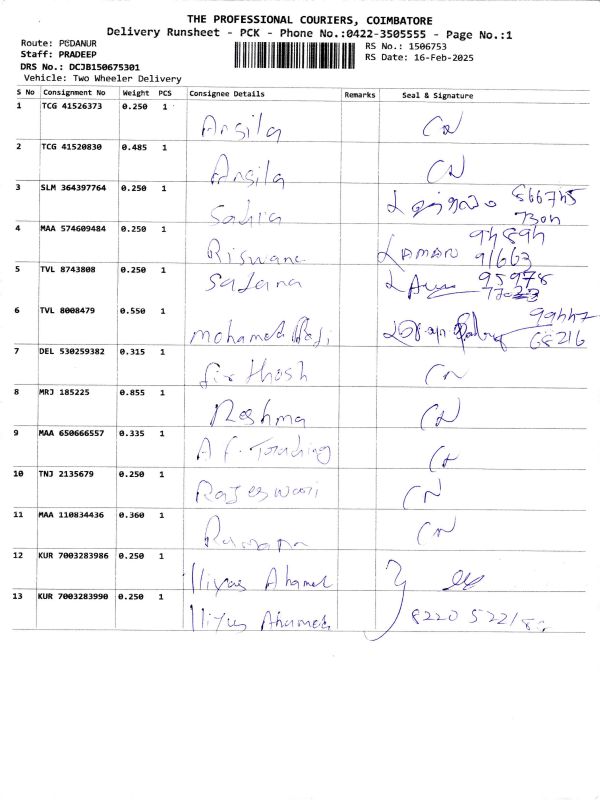 THE PROFESSIONAL COURIERS, COIMBATORE
Delivery Runsheet - PCK - Phone No.:0422-3505555 - Page No.:1
Route: PODANUR
RS No.: 1506753
Staff: PRADEEP
RS Date: 16-Feb-2025
DRS No.: DCJB150675301
Vehicle: Two Wheeler Delivery
S No Consignment No Weight PCS Consignee Details Remarks Seal & Signature
1 TCG 41526373 0.250 1 Ansila CN
2 TCG 41520830 0.485 1 Ansila CN
3 SLM 364397764 0.250 1 Sahira
4 MAA 574609484 0.250 1 Riswana 94894
91663
5 TVL 8743808 0.250 1 Sadana 95978
6 TVL 8008479 0.550 1 Mohamed 99447
68216
7 DEL 530259382 0.315 1 CN
8 MRJ 185225 0.855 1 Reshma CN
9 MAA 650666557 0.335 1 A F. Trading
10 TNJ 2135679 0.250 1 Rajeswari CN
11 MAA 110834436 0.360 1 Ramana CN
12 KUR 7003283986 0.250 1 Iliyas Ahamed
13 KUR 7003283990 0.250 1 Iliyas Ahamed 8220 522